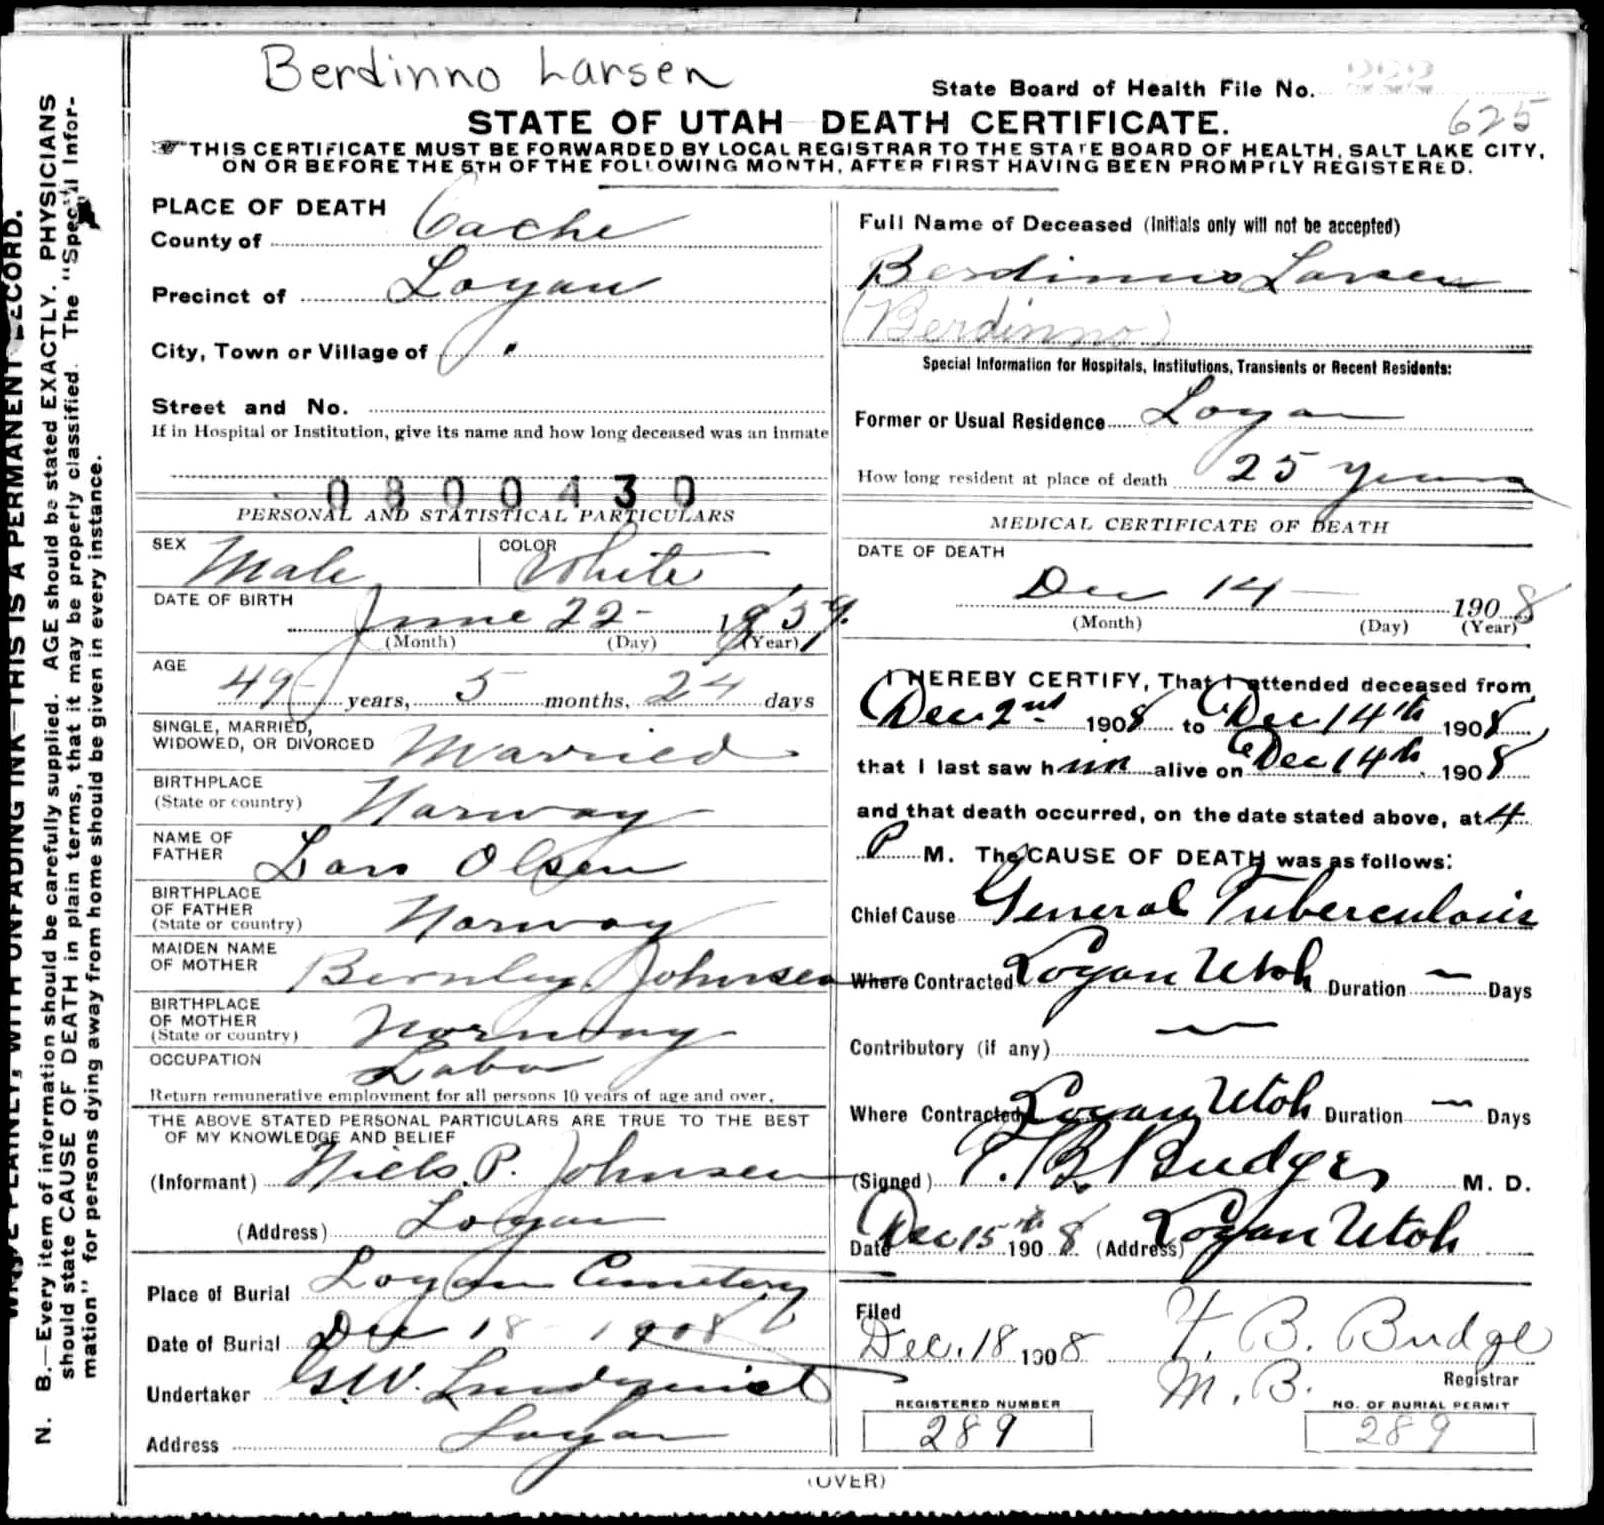 Berdinno Larsen
State Board of Health File No.
625
STATE OF UTAH DEATH CERTIFICATE.
THIS CERTIFICATE MUST BE FORWARDED BY LOCAL REGISTRAR TO THE STATE BOARD OF HEALTH, SALT LAKE CITY,
ON OR BEFORE THE 5TH OF THE FOLLOWING MONTH, AFTER FIRST HAVING BEEN PROMPTLY REGISTERED.
PLACE OF DEATH
County of Cache
Precinct of Logan
City, Town or Village of "
Street and No.
If in Hospital or Institution, give its name and how long deceased was an inmate
0800430
PERSONAL AND STATISTICAL PARTICULARS
SEX Male COLOR White
DATE OF BIRTH
June 22 - 1859.
(Month) (Day) (Year)
AGE
49 years, 5 months, 24 days
SINGLE, MARRIED,
WIDOWED, OR DIVORCED Married
BIRTHPLACE
(State or country) Norway
NAME OF
FATHER Lars Olsen
BIRTHPLACE
OF FATHER
(State or country) Norway
MAIDEN NAME
OF MOTHER Johnsen
BIRTHPLACE
OF MOTHER
(State or country) Norway
OCCUPATION Labor
Return remunerative employment for all persons 10 years of age and over.
THE ABOVE STATED PERSONAL PARTICULARS ARE TRUE TO THE BEST
OF MY KNOWLEDGE AND BELIEF
(Informant) Niels. P. Johnsen
(Address) Logan
Place of Burial Logan Cemetery
Date of Burial Dec 18 - 1908
Undertaker G.W. Lindquist
Address Logan
Full Name of Deceased (Initials only will not be accepted)
Berdinnus Larsen
(Berdinno)
Special Information for Hospitals, Institutions, Transients or Recent Residents:
Former or Usual Residence Logan
How long resident at place of death 25 years
MEDICAL CERTIFICATE OF DEATH
DATE OF DEATH
Dec 14 — 1908
(Month) (Day) (Year)
I HEREBY CERTIFY, That I attended deceased from
Dec 2nd 1908 to Dec 14th 1908
that I last saw him alive on Dec 14th. 1908
and that death occurred, on the date stated above, at 4
P M. The CAUSE OF DEATH was as follows:
Chief Cause General Tuberculosis
Where Contracted Logan Utah Duration — Days
Contributory (if any) —
Where Contracted Logan Utah Duration — Days
(Signed) T. B. Budge, M. D.
Date Dec 15th 1908 (Address) Logan Utah
Filed
Dec. 18 1908 T. B. Budge
M. B. Registrar
REGISTERED NUMBER
289
NO. OF BURIAL PERMIT
289
(OVER)
WRITE PLAINLY, WITH UNFADING INK—THIS IS A PERMANENT RECORD.
N. B.—Every item of information should be carefully supplied. AGE should be stated EXACTLY. PHYSICIANS
should state CAUSE OF DEATH in plain terms, that it may be properly classified. The "Special Infor-
mation" for persons dying away from home should be given in every instance.